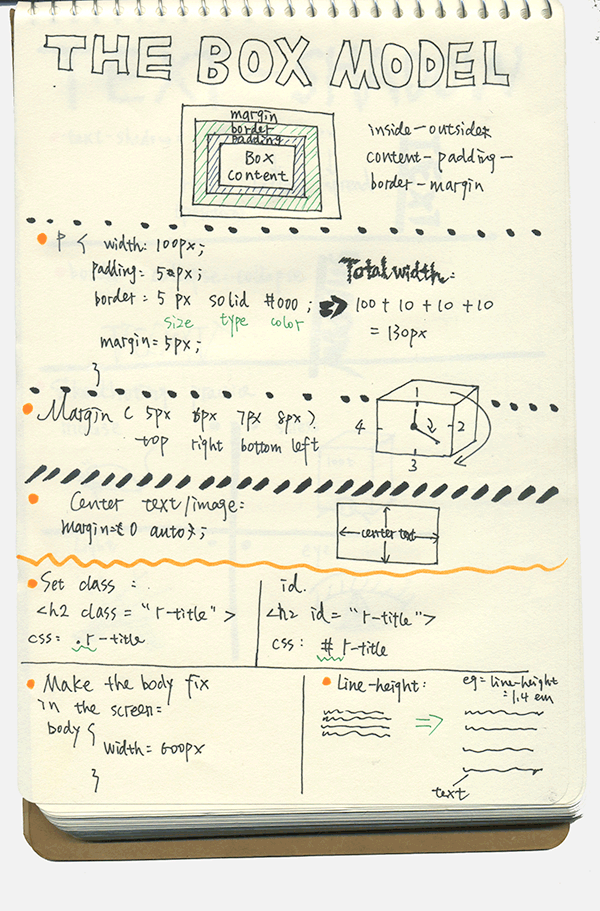 THE BOX MODEL
margin
border
padding
Box
content
inside-outsider
content-padding-
border-margin
P {
width: 100px;
padding: 5px;
border: 5 px solid #000;
size type color
margin: 5px;
}
Total width:
100 + 10 + 10 + 10
= 130px
Margin ( 5px 6px 7px 8px )
top right bottom left
1
4
2
3
Center text/image:
margin: 0 auto;
center text
Set class :
<h2 class = "r-title" >
css: .r-title
id.
<h2 id = "r-title">
css: # r-title
Make the body fix
in the screen:
body {
width: 600px
}
Line-height:
eg: line-height
: 1.4 em
text